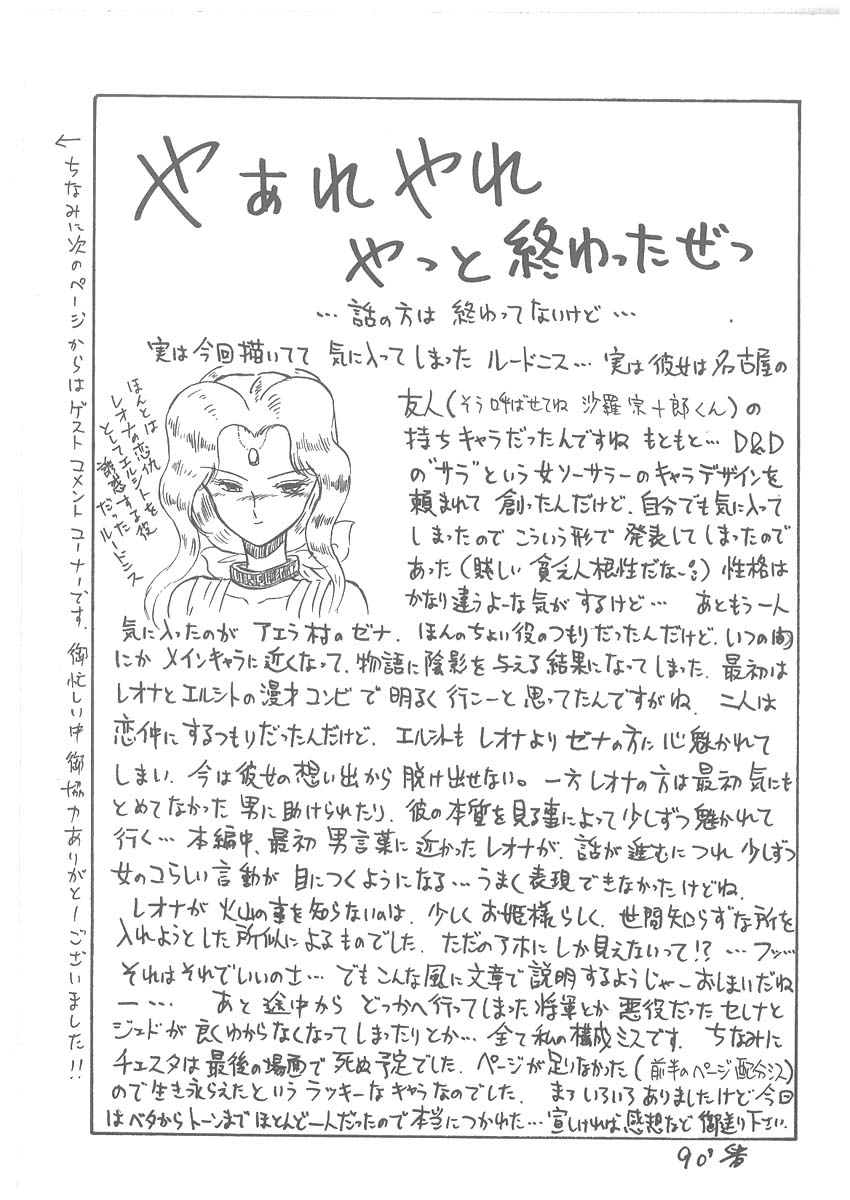 やぁれやれ
やっと終わったぜっ
…話の方は 終わってないけど…
実は今回描いてて 気に入ってしまった ルードニス… 実は彼女は名古屋の
友人(そう呼ばせてね 沙羅宗十郎くん)の
持ちキャラだったんですね もともと… D&D
の"サラ"という女ソーサラーのキャラデザインを
頼まれて 創ったんだけど、自分でも気に入って
しまったので こういう形で 発表してしまったので
あった(賤しい 貧乏人根性だな〜) 性格は
かなり違うよーな気がするけど… あともう一人
気に入ったのが アエラ村のゼナ. ほんのちょい役のつもりだったんだけど、いつの間
にか メインキャラに近くなって、物語に陰影を与える結果になってしまった. 最初は
レオナとエルシトの漫才コンビで明るく行こーと思ってたんですがね. 二人は
恋仲にするつもりだったんだけど、エルシトも レオナより ゼナの方に心魅かれて
しまい、今は彼女の想い出から脱け出せない。一方レオナの方は最初気にも
とめてなかった男に助けられたり、彼の本質を見る事によって少しずつ魅かれて
行く… 本編中、最初 男言葉に近かったレオナが、話が進むにつれ 少しずつ
女のコらしい言動が 目につくようになる…うまく表現できなかったけどね.
レオナが 火山の事を知らないのは、少しく お姫様らしく、世間知らずな所を
入れようとした所似によるものでした. ただのアホにしか見えないって!? …フッ…
それはそれでいいのさ… でもこんな風に文章で説明するようじゃーおしまいだね
ー… あと 途中から どっかへ行ってしまった将軍とか 悪役だった セレナと
ジェドが良くわからなくなってしまったりとか…全て私の構成ミスです. ちなみに
チェスタは最後の場面で死ぬ予定でした. ページが足りなかった(前半のページ配分ミス)
ので生き永らえたというラッキーなキャラなのでした. まァいろいろありましたけど今回
はベタからトーンまでほとんど一人だったので本当につかれた…宜しければ感想など御送り下さい.
90'
ほんとは
レオナの恋仇
としてエルシトを
誘惑する役
だった
ルードニス
←ちなみに次のページからはゲストコメントコーナーです. 御忙しい中御協力ありがとーございました!!